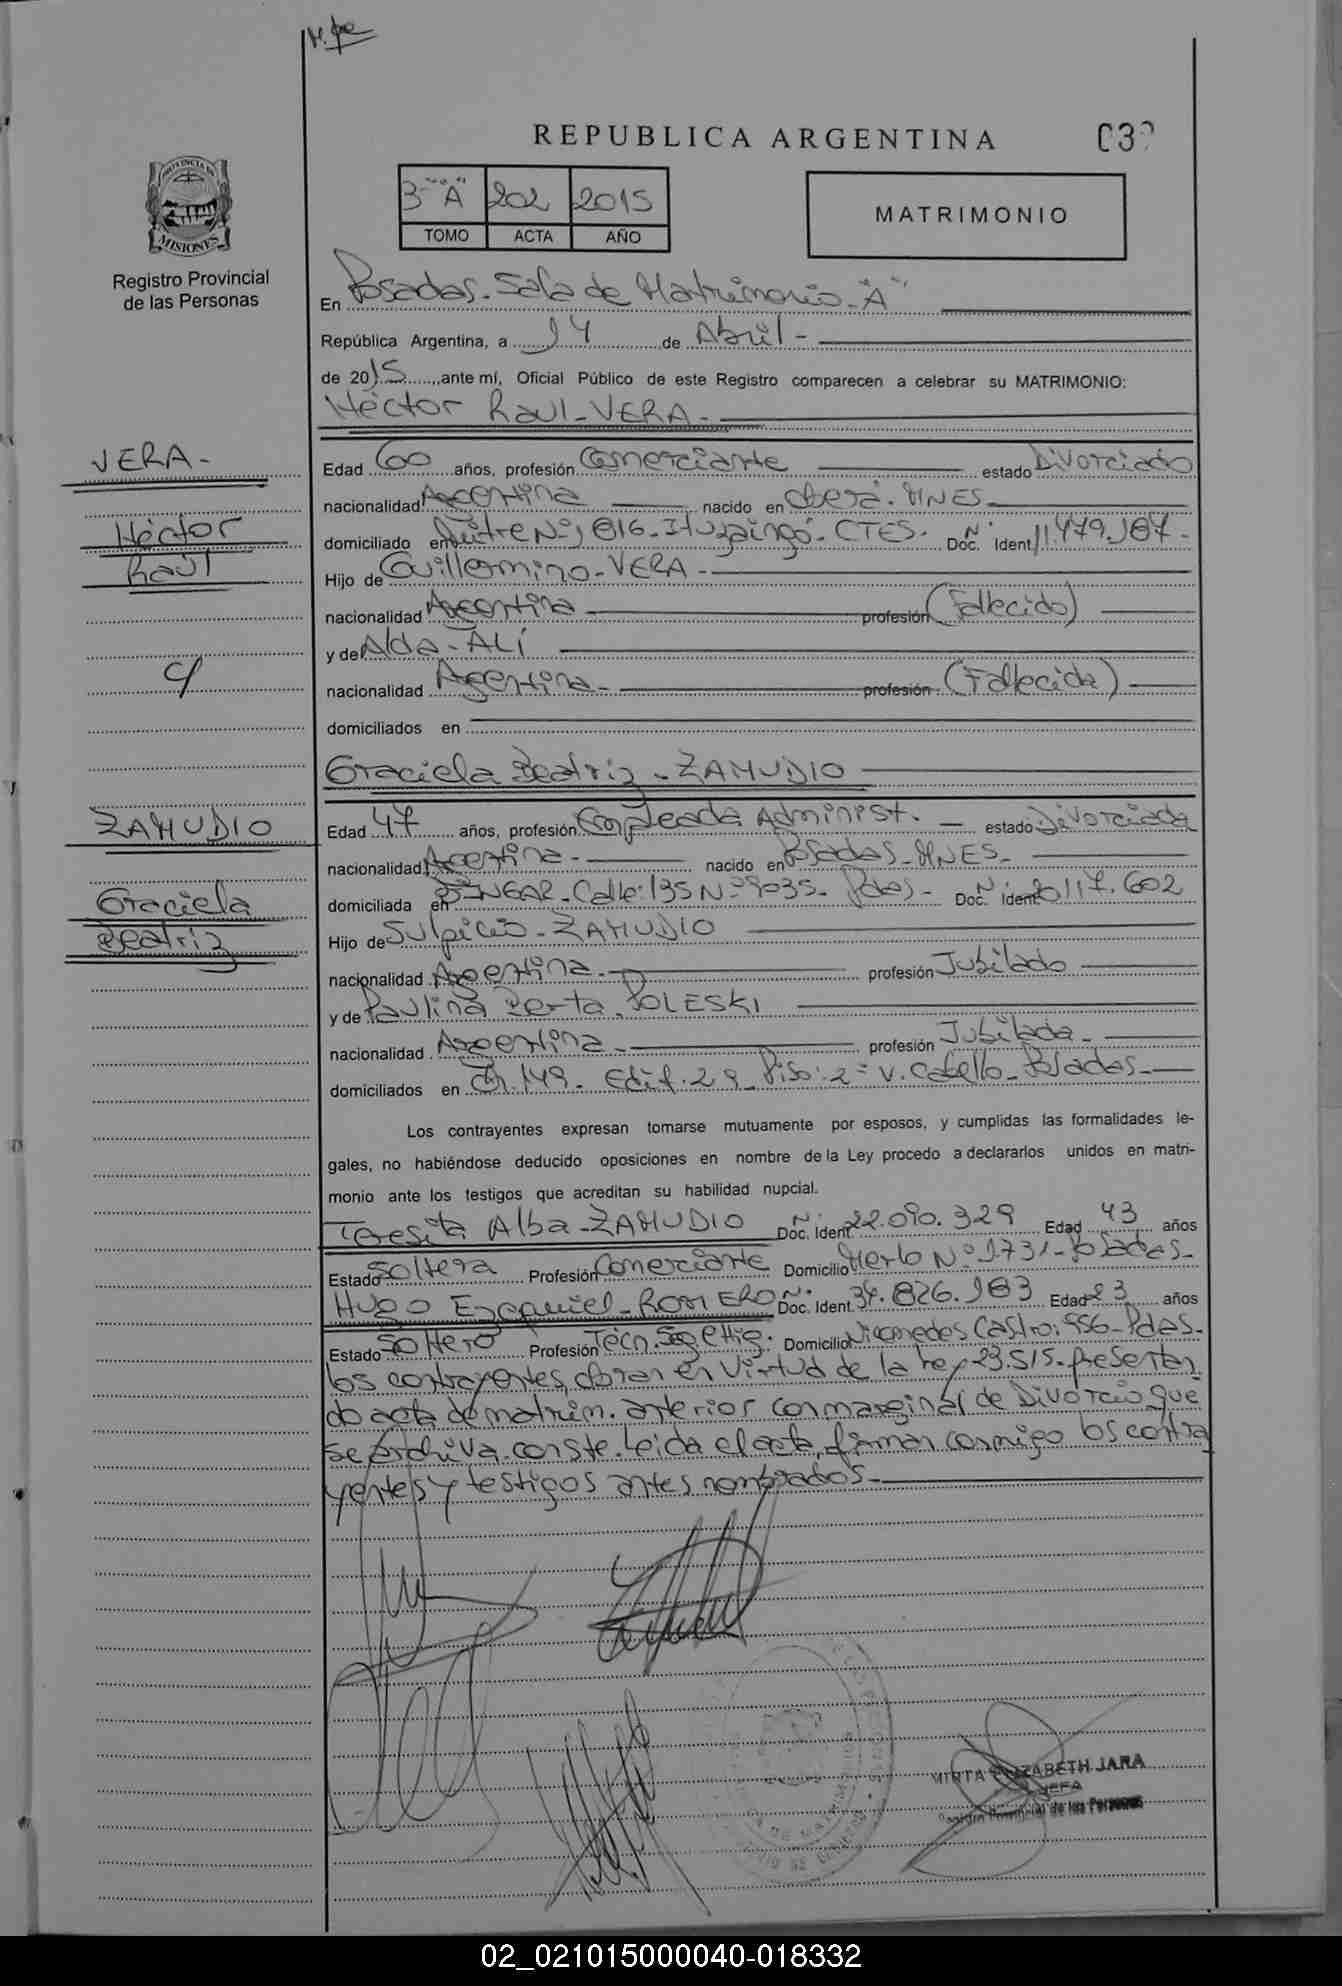 REPUBLICA ARGENTINA
3-"A" 202 2015
TOMO ACTA AÑO
MATRIMONIO
PROVINCIA DE
MISIONES
Registro Provincial
de las Personas
En Posadas. Sala de Matrimonio-"A"
República Argentina, a 14 de Abril-
de 2015, ante mí, Oficial Público de este Registro comparecen a celebrar su MATRIMONIO:
Héctor Raúl-VERA-
VERA-
Héctor
Raúl
c/
ZAMUDIO
Graciela
Beatriz
Edad 60 años, profesión Comerciante estado Divorciado
nacionalidad Argentina nacido en Oberá. MNES-
domiciliado en Mitre Nº 1816-Ituzaingó-CTES. Doc. Nº Ident. 11.479.187-
Hijo de Guillermino-VERA-
nacionalidad Argentina profesión (Fallecido)
y de Alda-ALÍ
nacionalidad Argentina- profesión (Fallecida)
domiciliados en
Graciela Beatriz-ZAMUDIO
Edad 47 años, profesión Empleada Administ.- estado Divorciada
nacionalidad Argentina- nacido en Posadas-MNES-
domiciliada en Calle: 135 Nº 9035- Pdas- Doc. Nº Ident. 20117.602
Hijo de Sulpicio-ZAMUDIO
nacionalidad Argentina- profesión Jubilado
y de Paulina Berta-POLESKI
nacionalidad Argentina- profesión Jubilada-
domiciliados en Ch.149- Edif.29-Piso:2º V. Cabello-Posadas-
Los contrayentes expresan tomarse mutuamente por esposos, y cumplidas las formalidades le-
gales, no habiéndose deducido oposiciones en nombre de la Ley procedo a declararlos unidos en matri-
monio ante los testigos que acreditan su habilidad nupcial.
Teresita Alba-ZAMUDIO Doc. Nº Ident. 22.090.329 Edad 43 años
Estado Soltera Profesión Comerciante Domicilio Merlo Nº 1731-Posadas-
Hugo Ezequiel-ROMERO Doc. Nº Ident. 34.826.183 Edad 23 años
Estado Soltero Profesión Técn. Seg e Hig. Domicilio Nicomedes Castro: 956-Pdas.
los contrayentes, obran en virtud de la ley 23.515-presentan
do acta de matrim. anterior con marginal de Divorcio que
se archiva. conste. Leída el acta, firman conmigo los contra
yentes y testigos antes nombrados-
MIRTA ELIZABETH JARA
JEFA
Registro Provincial de las Personas
02_021015000040-018332